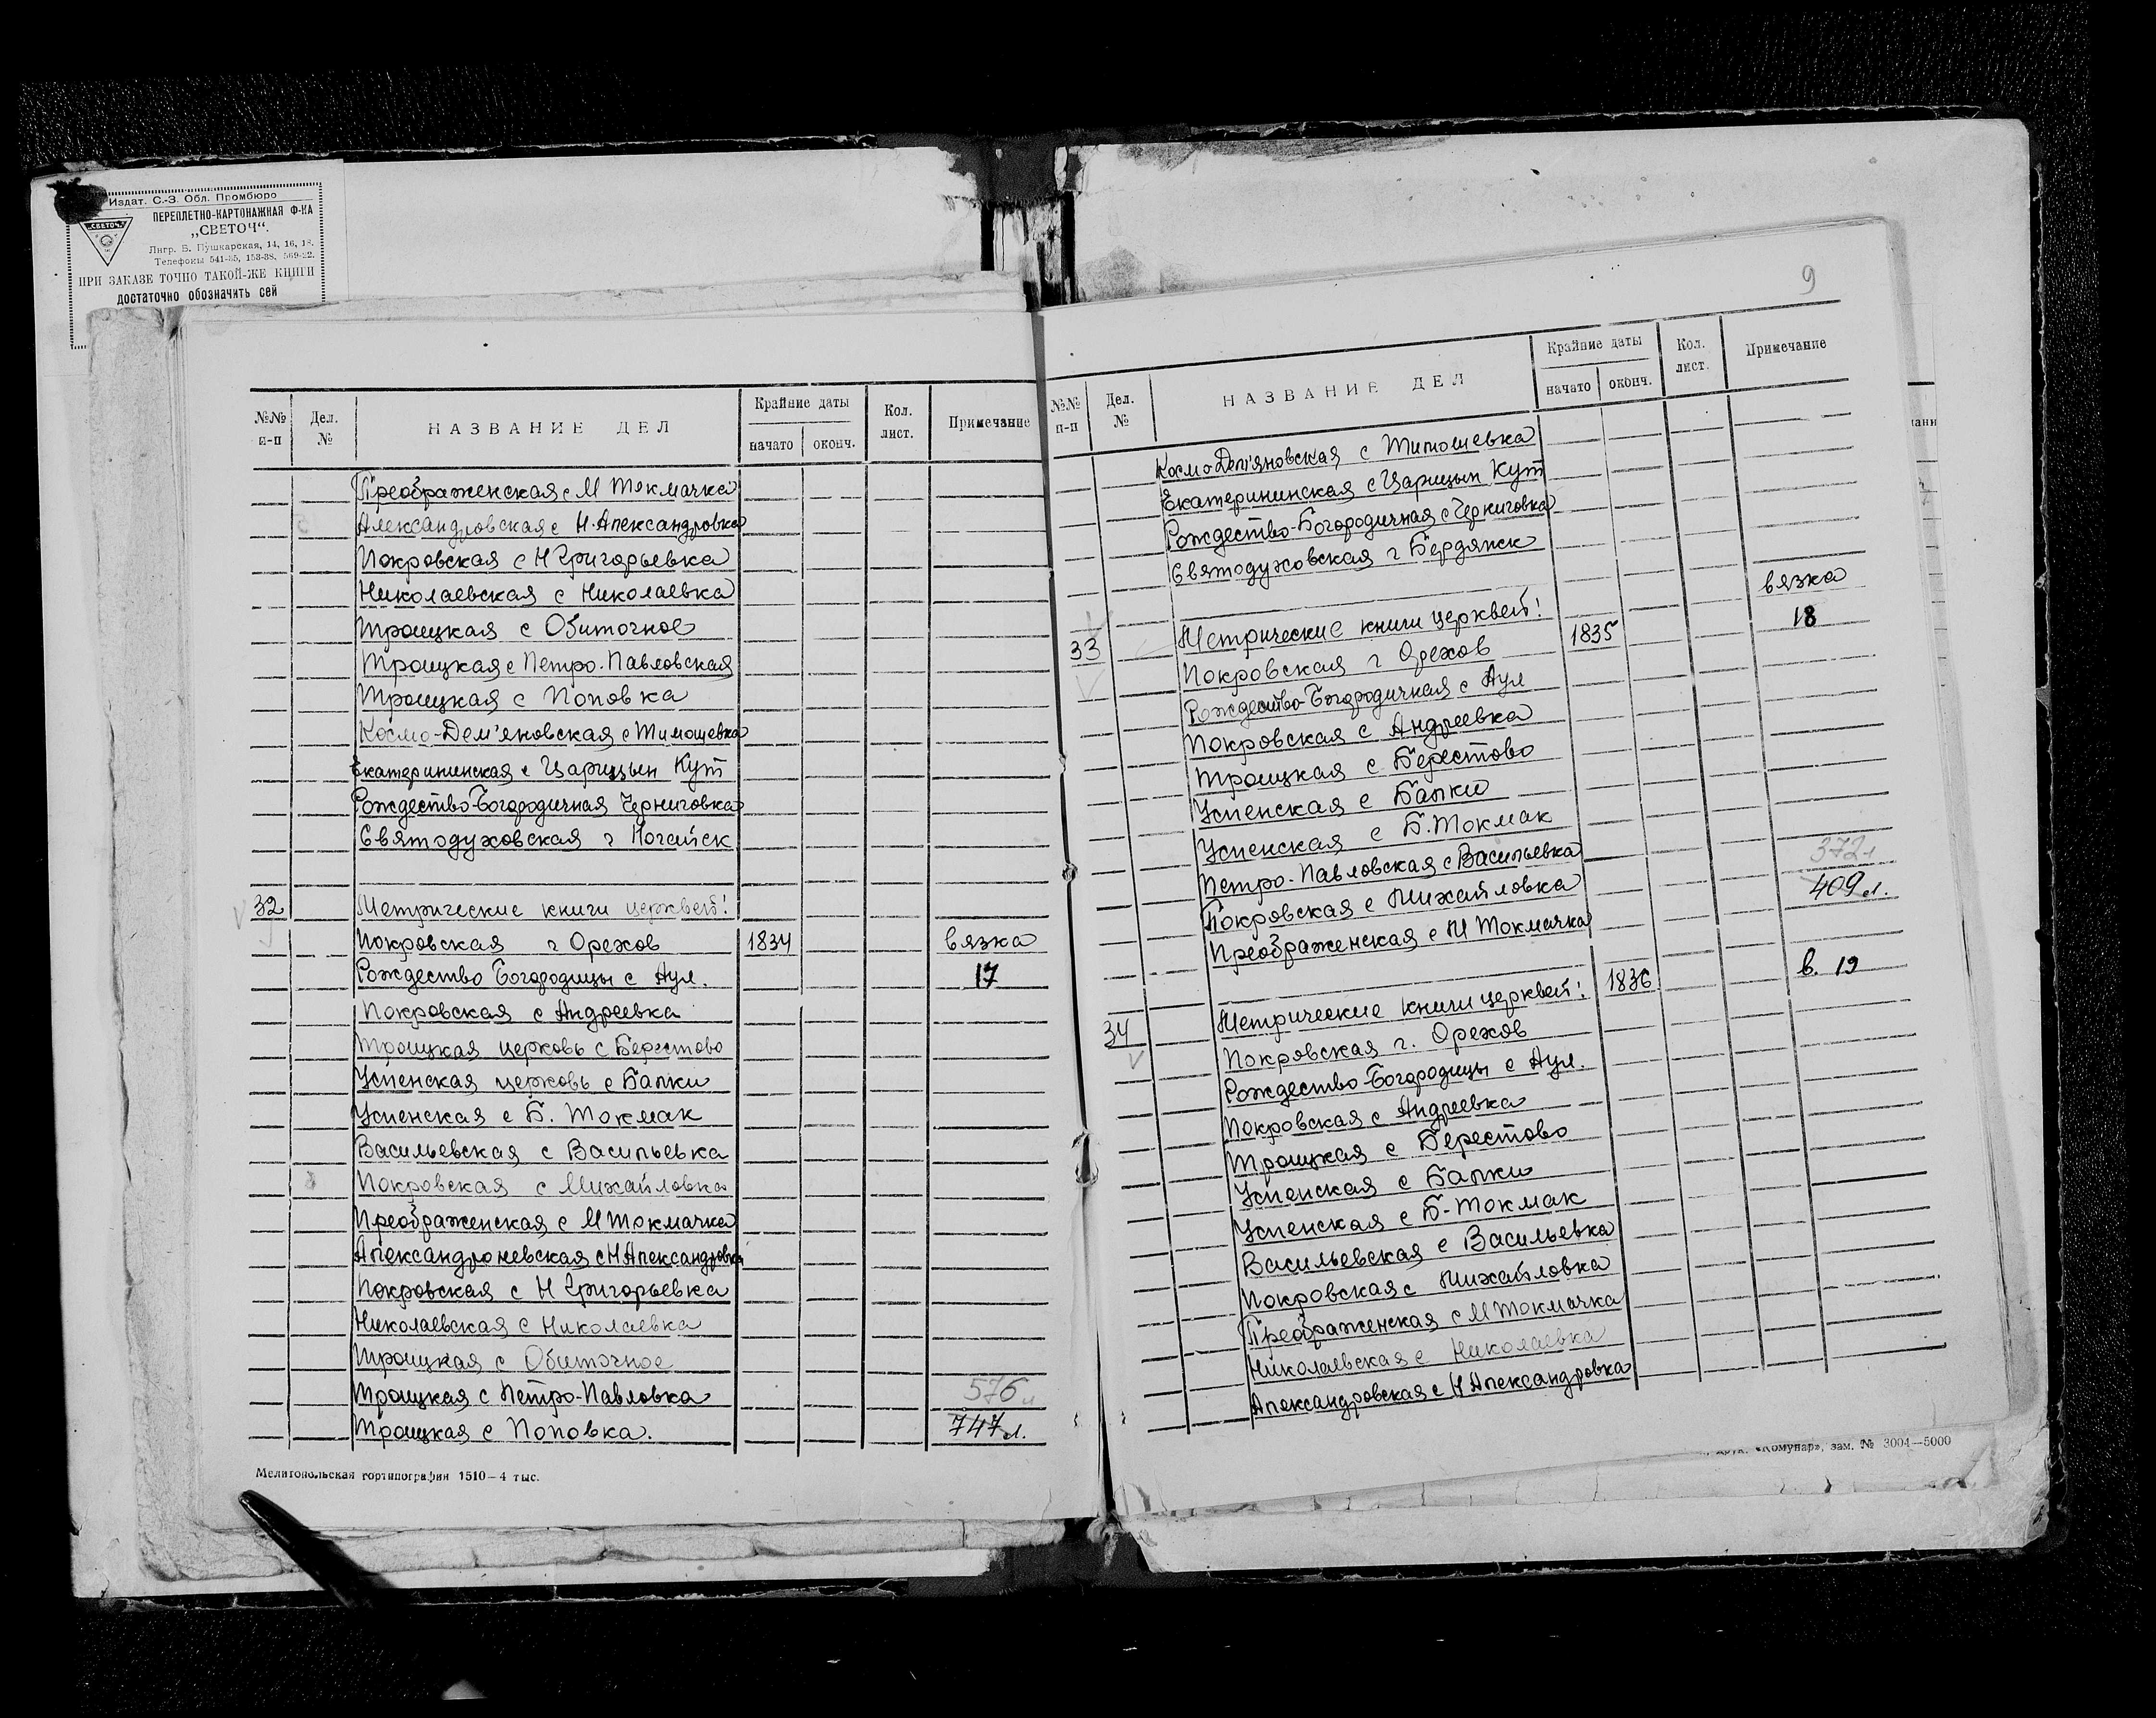 Издат. С.-З. Обл. Промбюро
ПЕРЕПЛЕТНО-КАРТОНАЖНАЯ Ф-КА
„СВЕТОЧ“.
„СВЕТОЧ“
Лнгр. Б. Пушкарская, 14, 16, 18.
Телефоны 541-85, 158-88, 569-22.
ПРИ ЗАКАЗЕ ТОЧНО ТАКОЙ-ЖЕ КНИГИ
достаточно обозначить сей
№№ п-п Дел. № НАЗВАНИЕ ДЕЛ Крайние даты начато оконч. Кол. лист. Примечание
Преображенская с М Токмачка
Александровская с Н-Александровка
Покровская с Н Григорьевка
Николаевская с Николаевка
Троицкая с Обиточное
Троицкая с Петро-Павловская
Троицкая с Поповка
Космо-Дем'яновская с Тимошевка
Екатерининская с Царицын Кут
Рождество-Богородичная Черниговка
Святодуховская г Ногайск
32 Метрические книги церквей!
Покровская г Орехов 1834 вязка
Рождество Богородицы с Аул. 17
Покровская с Андреевка
Троицкая церковь с Берестово
Успенская церковь с Балки
Успенская с Б. Токмак
Васильевская с Васильевка
Покровская с Михайловка
Преображенская с М Токмачка
Александроневская с Н Александровка
Покровская с Н Григорьевка
Николаевская с Николаевка
Троицкая с Обиточное
Троицкая с Петро-Павловка 576 л
Троицкая с Поповка. 747 л.
Мелитопольская гортипография 1510—4 тыс.
9
№№ п-п Дел. № НАЗВАНИЕ ДЕЛ Крайние даты начато оконч. Кол. лист. Примечание
Космо Дем'яновская с Тимошевка
Екатерининская с Царицын Кут
Рождество-Богородичная с Черниговка
Святодуховская г Бердянск
33 Метрические книги церквей! 1835 вязка
Покровская г Орехов 18
Рождество-Богородичная с Аул
Покровская с Андреевка
Троицкая с Берестово
Успенская с Балки
Успенская с Б. Токмак
Петро-Павловская с Васильевка
Покровская с Михайловка 372 л
Преображенская с М Токмачка 409 л.
34 Метрические книги церквей! 1836 в. 19
Покровская г. Орехов
Рождество-Богородицы с Аул.
Покровская с Андреевка
Троицкая с Берестово
Успенская с Балки
Успенская с Б-Токмак
Васильевская с Васильевка
Покровская с Михайловка
Преображенская с М Токмачка
Николаевская с Николаевка
Александровская с Н Александровка
«Комунар», зам. № 3004—5000